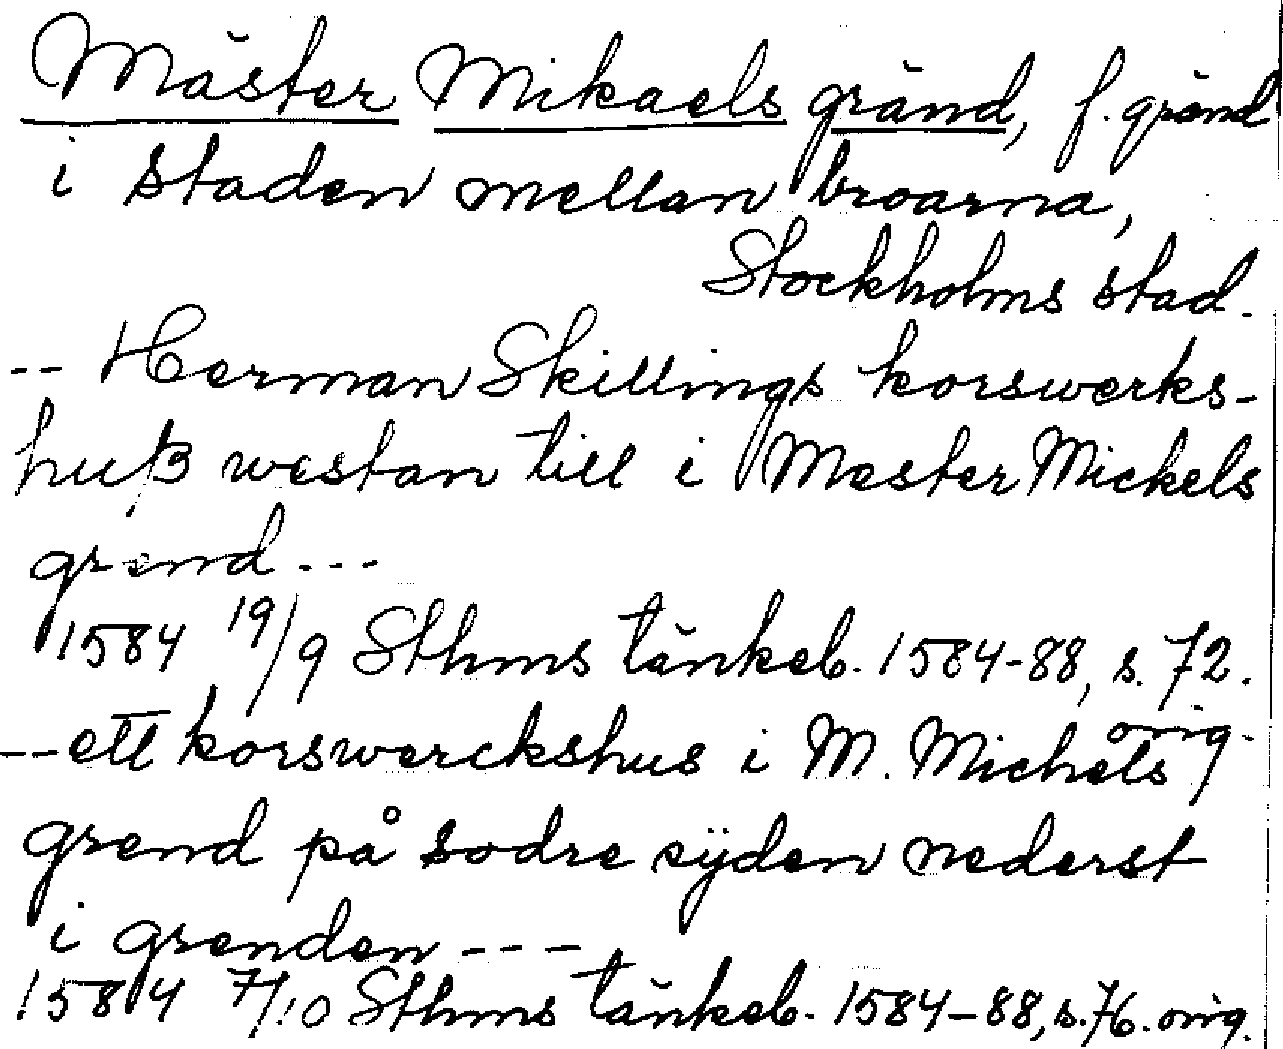 Mäster Mikaels gränd, f. gränd
i staden mellan broarna,
Stockholms stad.
-- Herman Skillings korswerks-
huß westan till i Mester Mickels
grend ---
1584 19/9 Sthms tänkeb. 1584-88, s. 72.
orig.
-- ett korswerckshus i M. Michels
grend på sodre sÿden nederst
i grenden ---
1584 7/10 Sthms tänkeb. 1584-88, s. 76. orig.